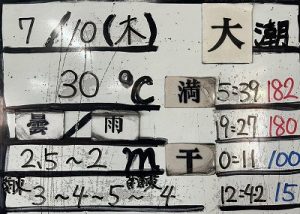 7/10(木) 大潮
30℃ 満 5:39 182
曇/雨 9:27 180
2.5~2m 干 0:11 100
3~4~5~4 12:42 15